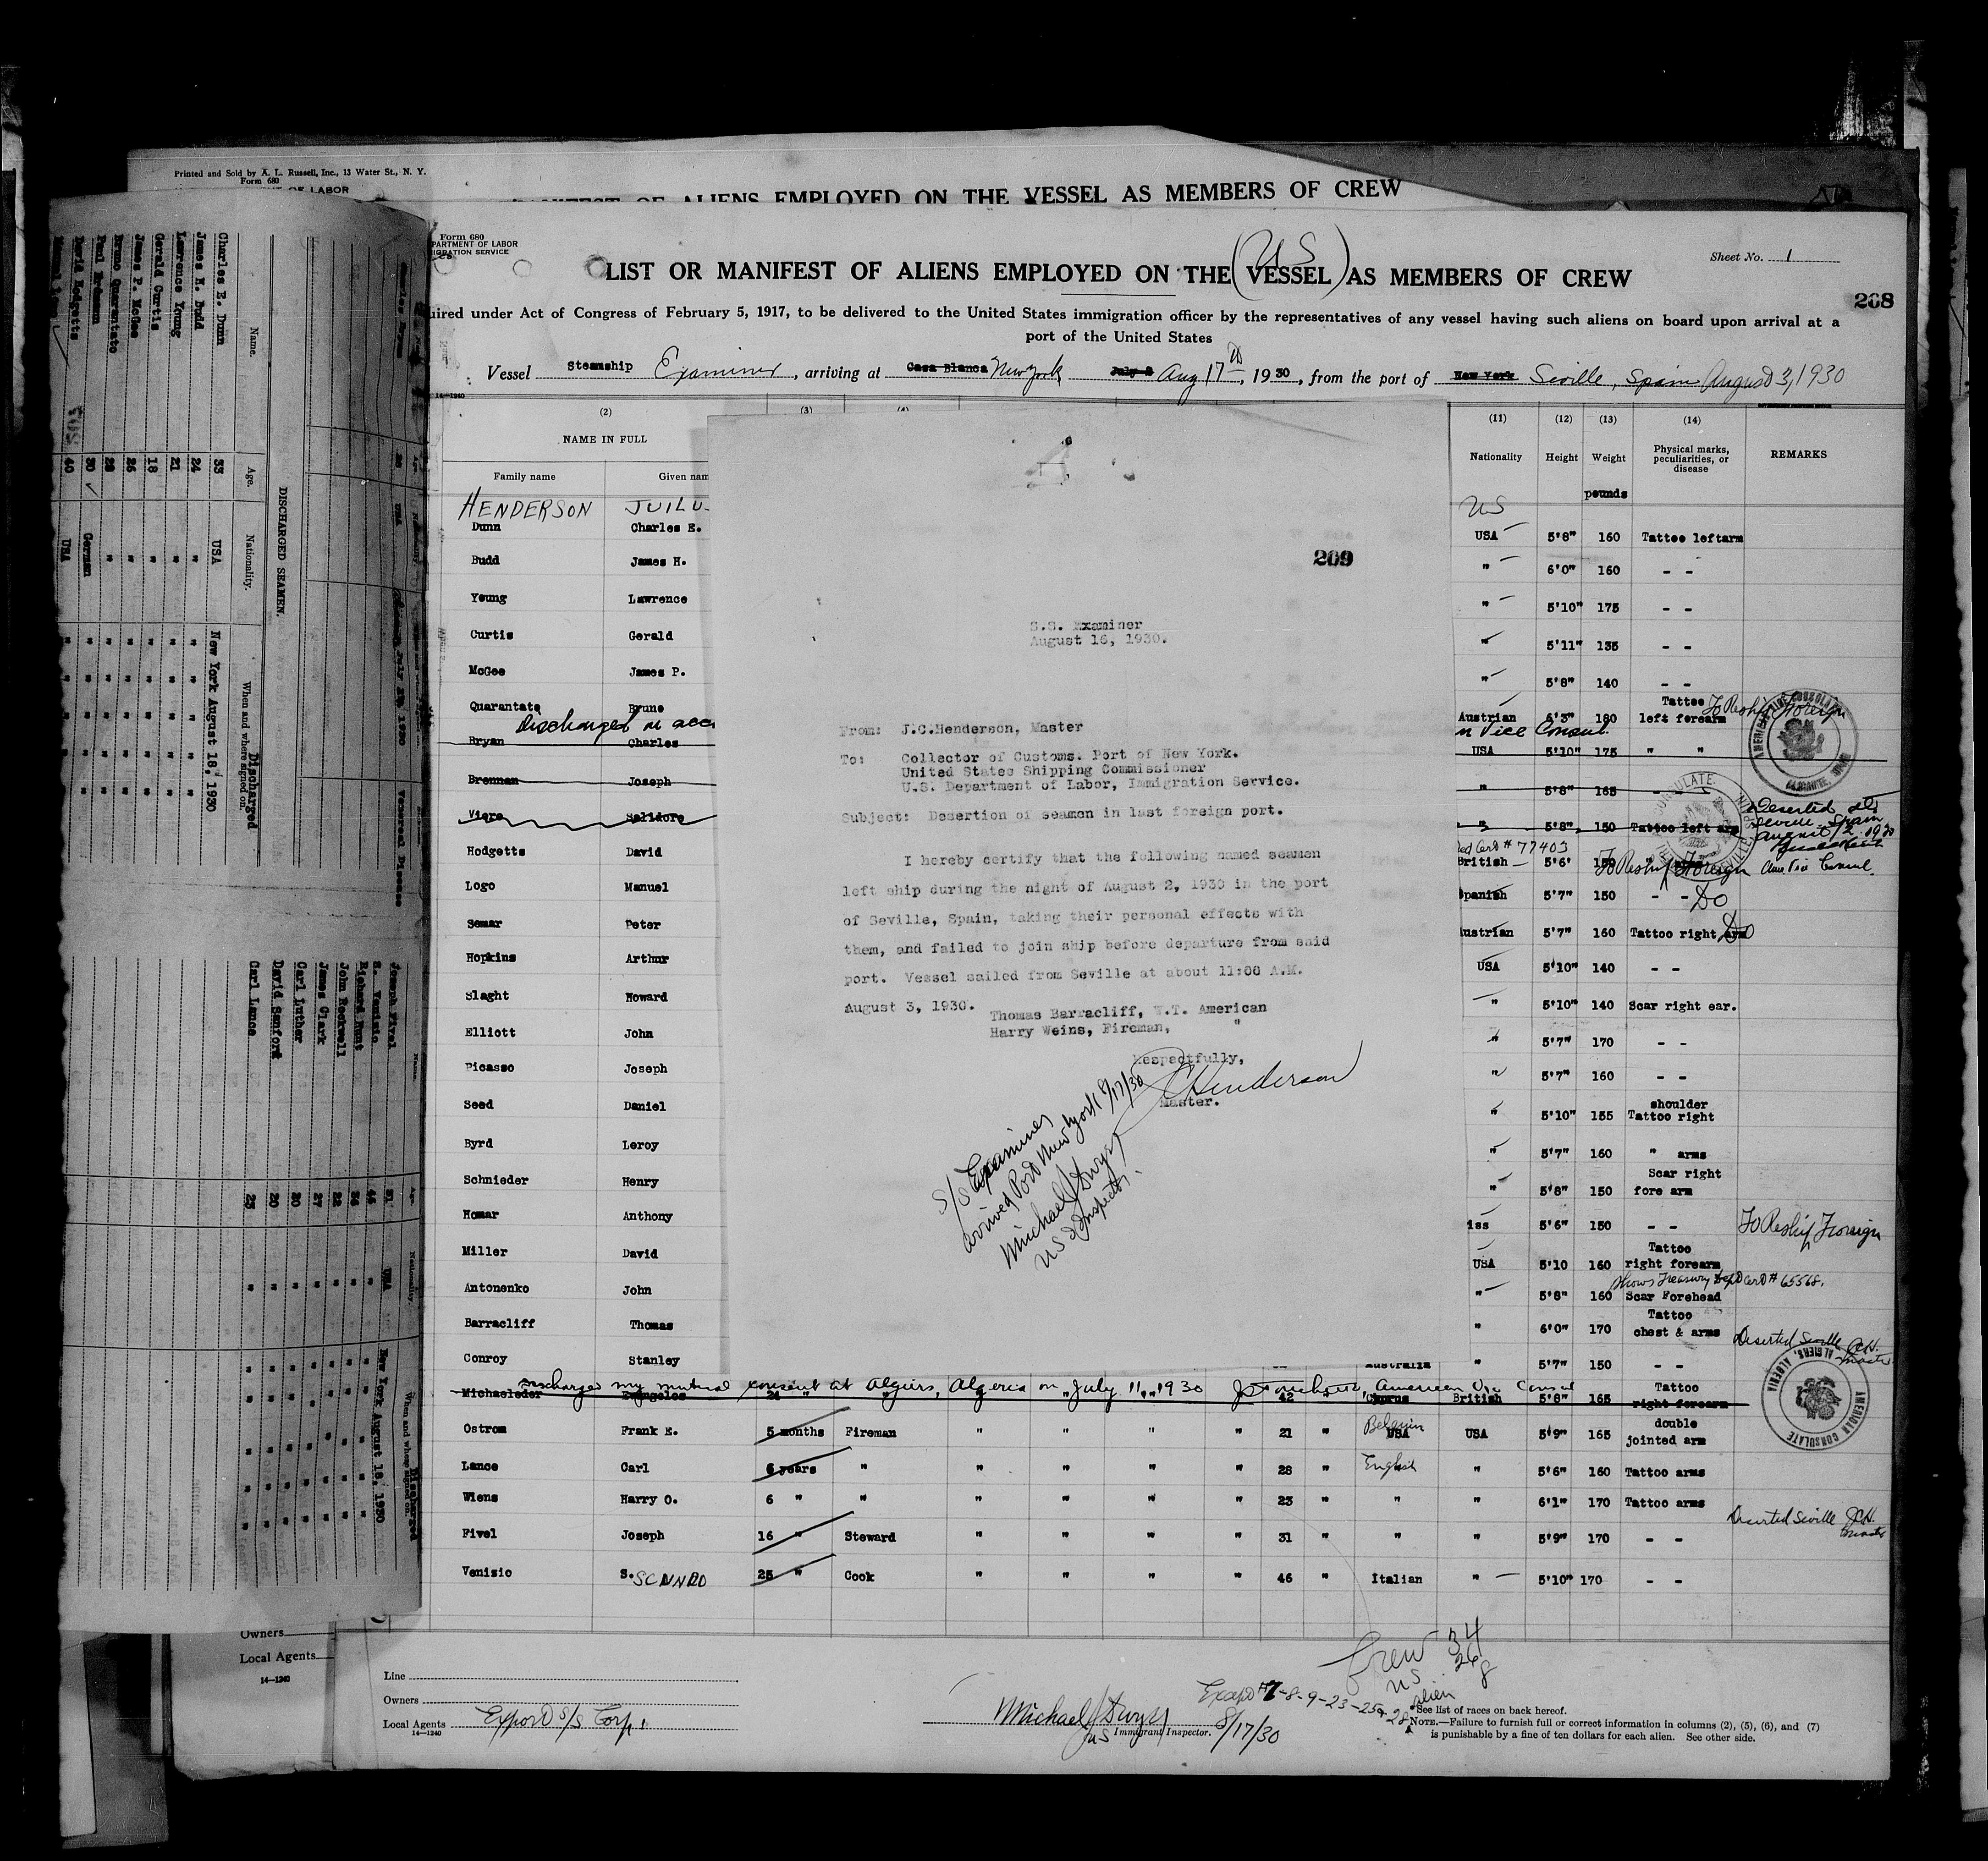 Printed and Sold by A. L. Russell, Inc., 13 Water St., N. Y.
Form 680
OF LABOR
OF ALIENS EMPLOYED ON THE VESSEL AS MEMBERS OF CREW
Form 680
PARTMENT OF LABOR
IGRATION SERVICE
(US)
Sheet No. 1
LIST OR MANIFEST OF ALIENS EMPLOYED ON THE VESSEL AS MEMBERS OF CREW
208
uired under Act of Congress of February 5, 1917, to be delivered to the United States immigration officer by the representatives of any vessel having such aliens on board upon arrival at a
port of the United States
Vessel Steamship Examiner, arriving at Casa Blanca New York July Aug 17th, 1930, from the port of New York Seville, Spain August 3, 1930
14—1240
(2) (3) (4) (11) (12) (13) (14)
NAME IN FULL
Family name Given nam Nationality Height Weight Physical marks, peculiarities, or disease REMARKS
pounds
HENDERSON JUILU US
Dunn Charles E. USA 5'8" 160 Tattoo leftarm
Budd James H. " 6'0" 160 - -
Young Lawrence " 5'10" 175 - -
Curtis Gerald " 5'11" 135 - -
McGee James P. " 5'8" 140 - -
Quarantate Brune Austrian 6'3" 180 Tattoo left forearm To Reship Foreign
Discharged on acc n Vice Consul.
Bryan Charles USA 5'10" 175 " "
Brennan Joseph " 5'8" 165 - -
Viere Salidore " 5'8" 150 Tattoo left arm Deserted at Seville Spain August 2 1930
Card # 77403
Hodgetts David British 5'6' 150 To Reship Foreign Ame Vice Consul.
Logo Manuel Spanish 5'7" 150 - - Do
Semar Peter ustrian 5'7" 160 Tattoo right arm Do
Hopkins Arthur USA 5'10" 140 - -
Slaght Howard " 5'10" 140 Scar right ear.
Elliott John " 5'7" 170 - -
Picasso Joseph " 5'7" 160 - -
Seed Daniel " 5'10" 155 shoulder Tattoo right
Byrd Leroy " 5'7" 160 " arms
Schnieder Henry " 5'8" 150 Scar right fore arm
Homar Anthony iss 5'6" 150 - - To Reship Foreign
Miller David USA 5'10 160 Tattoo right forearm
Shows Treasury Dept Card # 65568.
Antonenko John " 5'8" 160 Scar Forehead
Barracliff Thomas " 6'0" 170 Tattoo chest & arms Deserted Seville JCH. Master
Conroy Stanley Australia " 5'7" 150 - -
Discharged my mutual consent at Algiers, Algeria on July 11, 1930 American Vice Consul
Michaeleder Evangelos 24 " " 42 " Cyprus British 5'8" 165 Tattoo right forearm
Ostrom Frank E. 5 months Fireman " " " " 21 " USA Belgium USA 5'9" 165 double jointed arm
Lance Carl 6 years " " " " " 28 " English " 5'6" 160 Tattoo arms
Wiens Harry O. 6 " " " " " " 23 " " " 6'1" 170 Tattoo arms Deserted Seville JCH. Master
Fivel Joseph 16 " Steward " " " " 31 " " " 5'9" 170 - -
Venisio S. 25 " Cook " " " " 46 " Italian " 5'10" 170 - -
AMERICAN CONSULATE
ALGIERS, ALGERIA
209
S.S. Examiner
August 16, 1930.
From: J.C.Henderson, Master
To: Collector of Customs. Port of New York.
United States Shipping Commissioner
U.S. Department of Labor, Immigration Service.
Subject: Desertion of seamen in last foreign port.
I hereby certify that the following named seamen
left ship during the night of August 2, 1930 in the port
of Seville, Spain, taking their personal effects with
them, and failed to join ship before departure from said
port. Vessel sailed from Seville at about 11:00 A.M.
August 3, 1930.
Thomas Barracliff, W.T. American
Harry Weins, Fireman, "
Respectfully,
JCHenderson
Master.
S/S Examiner
arrived Port New York 8/17/30
Michael J Dwyer
US Inspector.
DISCHARGED SEAMEN.
Name. Age. Nationality. Discharged When and where signed on.
Charles E. Dunn 33 USA New York August 18, 1930
James H. Budd 24 " " " " "
Lawrence Young 21 " " " " "
Gerald Curtis 18 " " " " "
James P. McGee 26 " " " " "
Bruno Quarantato 28 " " " " "
Paul 30 German " " " "
David Hodgetts 40 USA " " " "
Venereal Disease
Name Age Nationality. Discharged When and where signed on.
Joseph Fivel 31 USA New York August 18, 1930
S. Venisio 46 " " " " "
Richard Hunt 36 " " " " "
John Rockwell 22 " " " " "
James Clark 27 " " " " "
Carl Luther 20 " " " " "
David Sanford 20 " " " " "
Carl Lance 25 " " " " "
Owners
Local Agents
14—1240
Line
Owners
Local Agents Export S/S Corp.
14—1240
Michael J Dwyer
US Immigrant Inspector. 8/17/30
Except #7-8-9-23-25-28
Crew 34
US 26
alien 8
See list of races on back hereof.
NOTE.—Failure to furnish full or correct information in columns (2), (5), (6), and (7)
is punishable by a fine of ten dollars for each alien. See other side.